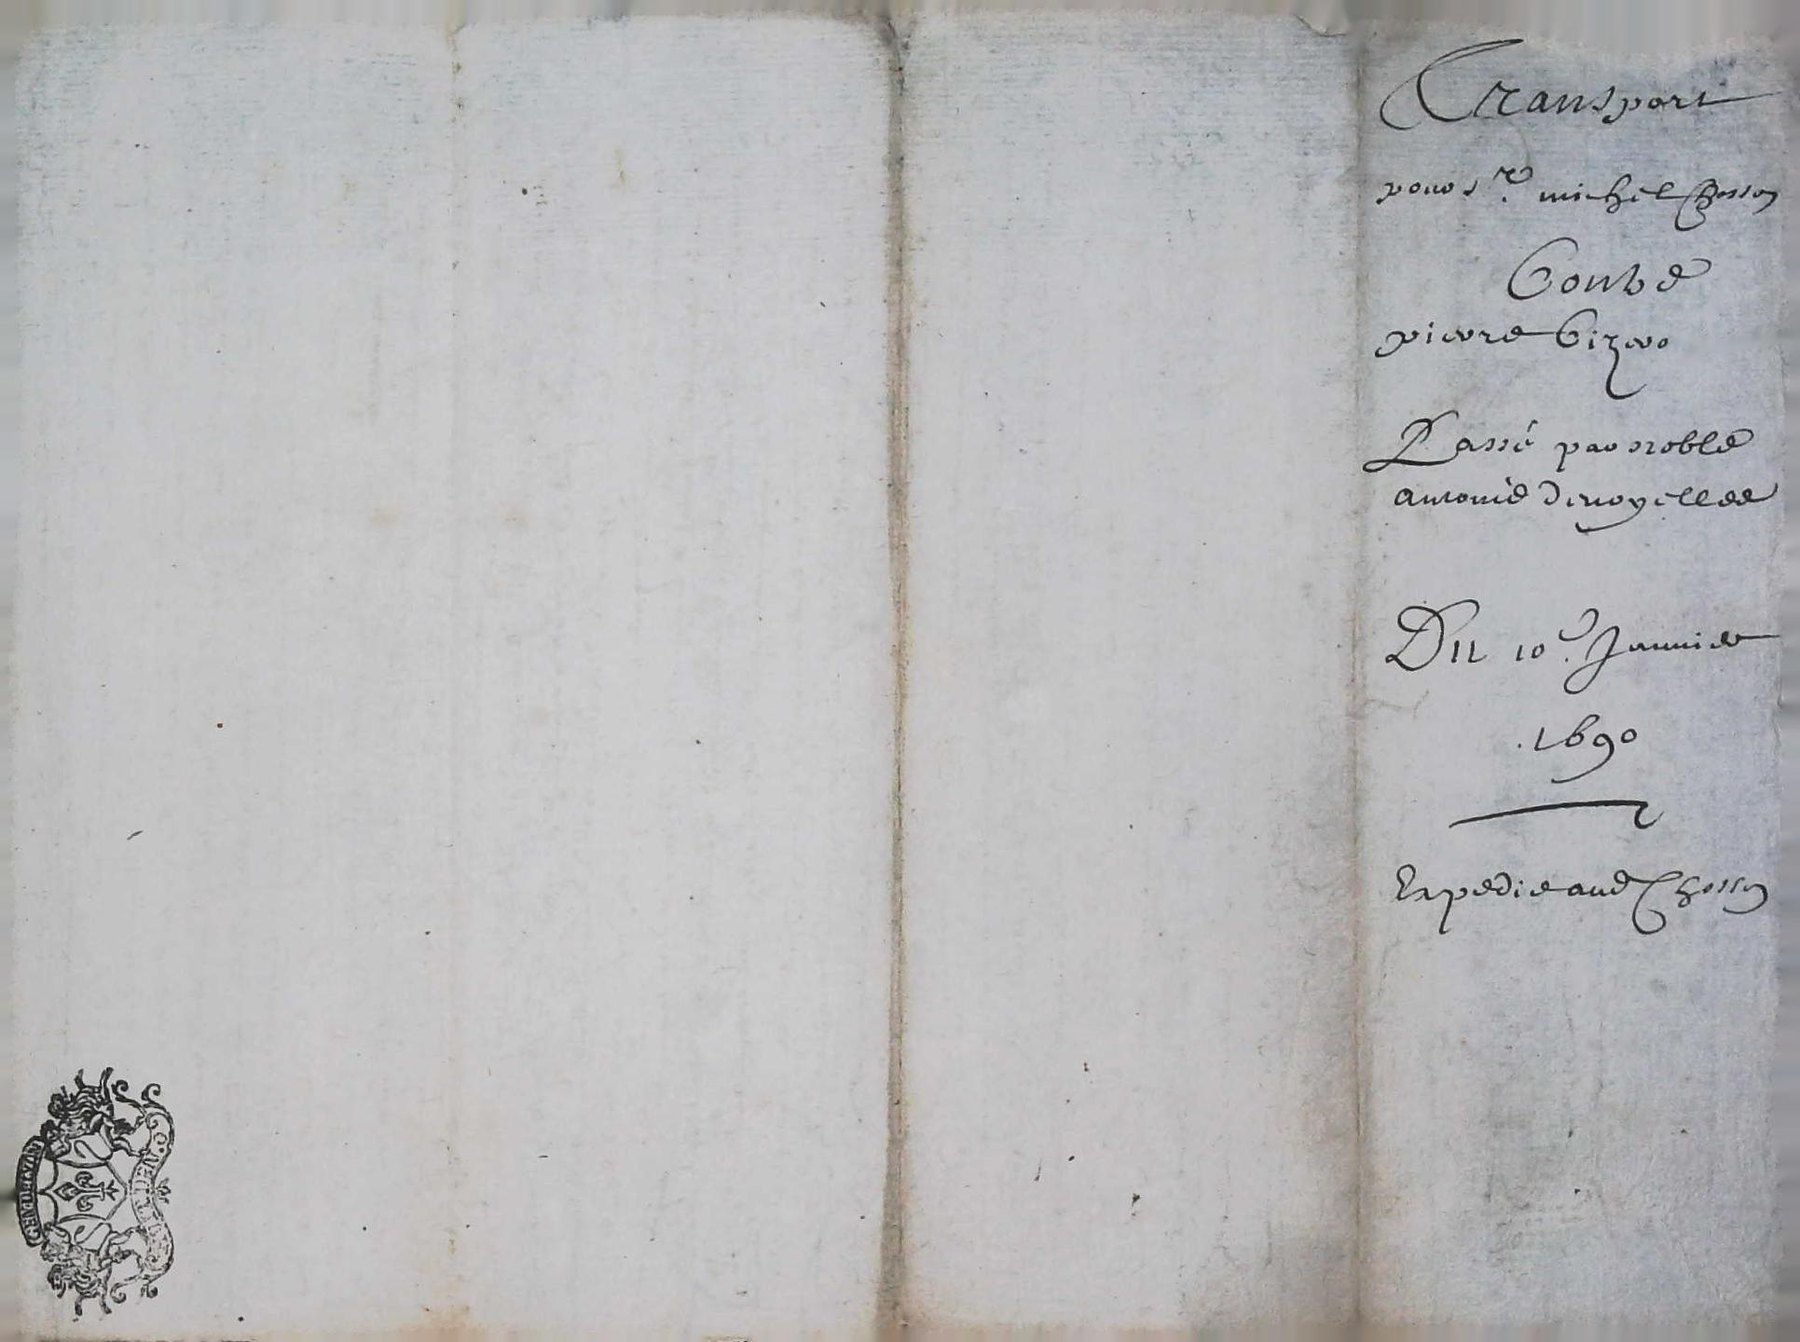 Transport
pour sr. michel Chosson
Contre
pierre Girero
Passé par noble
antoine denoyelles
Du 10e. Januier
.1690
Expedie aud Chosson